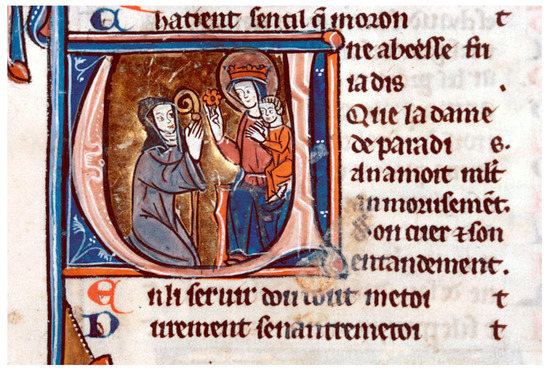 C hatient sencil q̃ moron t
Une abeesse fu
iadis .
Que la dame
de paradi s.
An amoit mlt
anmorisemēt.
Son cuer ⁊ son
entandement.
E nli seruir dou tout metoi t
D urement senantremetoi t